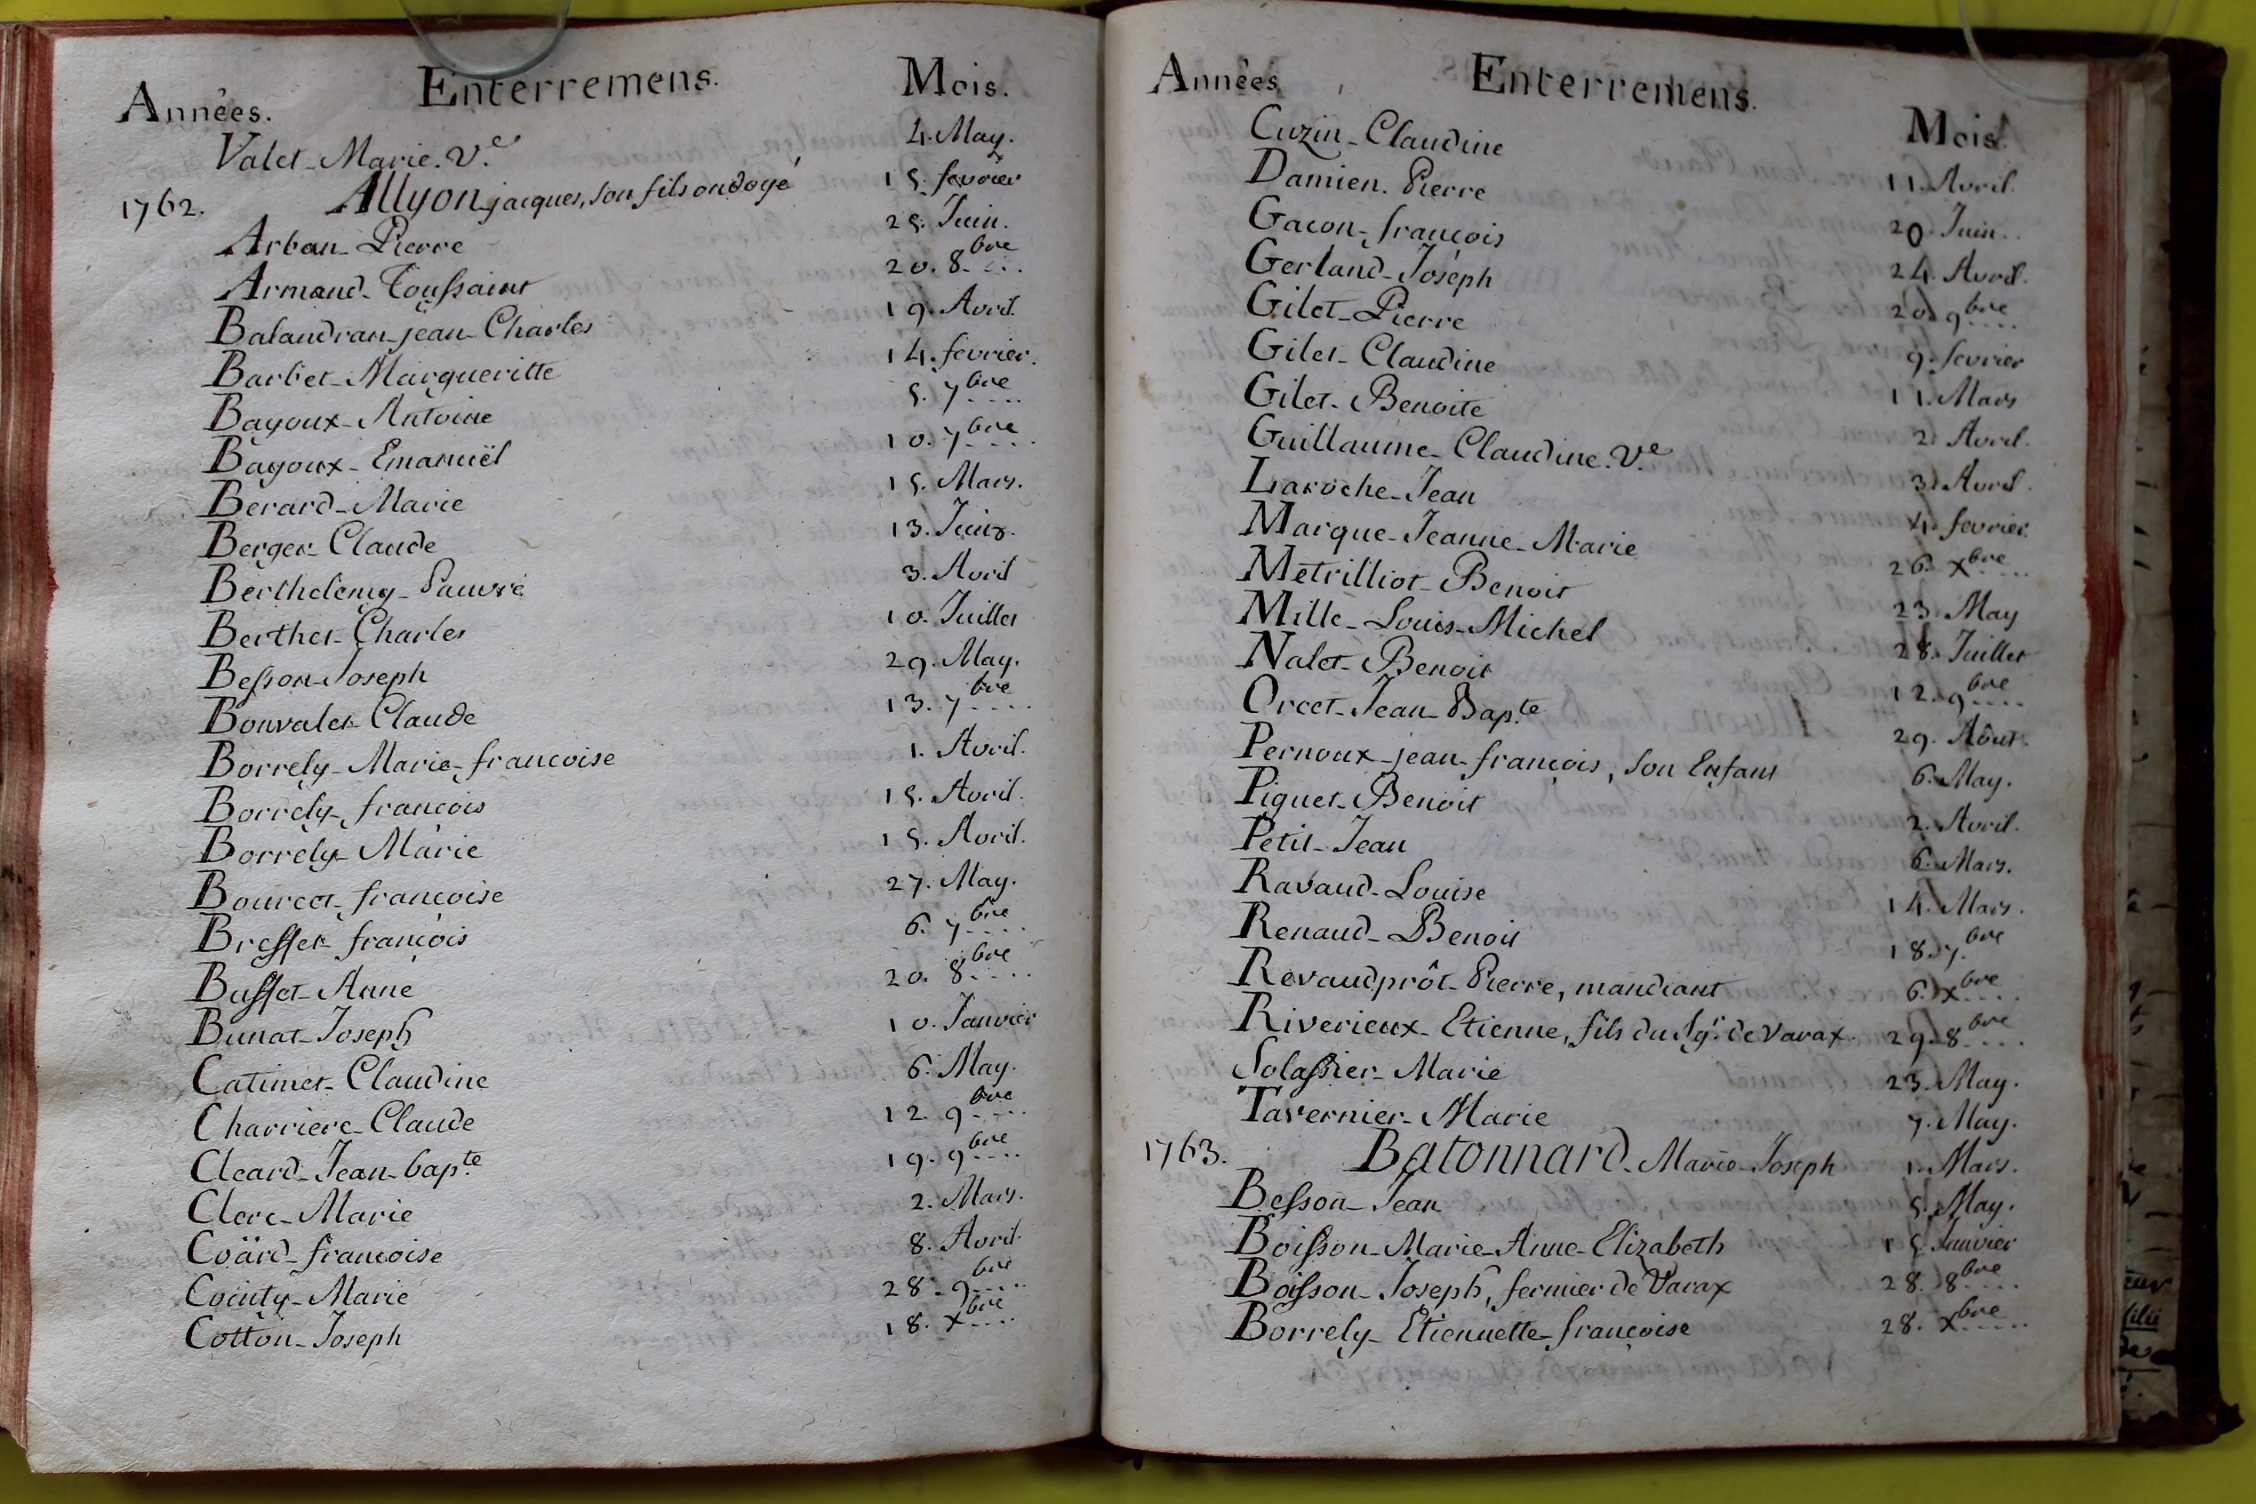 Années. Enterremens. Mois.
Valet_ Marie. V.e 4. May.
1762. Allyon_ jacques, son fils ondoyé 15. fevrier
Arban_ Pierre 25. Juin.
Armand_ Toussaint 20. 8.bre
Balandran_ jean_ Charles 19. Avril.
Barbet_ Margueritte 14. fevrier.
Bayoux_ Antoine 5. 7bre
Bayoux_ Emanuël 10. 7bre
Berard_ Marie 15. Mars.
Berger_ Claude 13. Juin.
Berthelemy_ Pauvre 3. Avril
Berthet_ Charles 10. Juillet
Besson_ Joseph 29. May.
Bonvalet_ Claude 13. 7bre
Borrely_ Marie_ francoise 1. Avril.
Borrely_ françois 15. Avril.
Borrely_ Marie 15. Avril.
Bourcet_ françoise 27. May.
Bresset_ françois 6. 7bre
Busset_ Anne 20. 8.bre
Bunat_ Joseph 10. Janvier
Catimet_ Claudine 6. May.
Charriere_ Claude 12. 9bre
Cleard_ Jean_ bap.te 19. 9bre
Clerc_ Marie 2. Mars.
Coärd_ francoise 8. Avril.
Cointy_ Marie 28. 9bre
Cotton_ Joseph 18. xbre
Années Enterremens. Mois.
Cuzin_ Claudine 11. Avril.
Damien. Pierre 20. Juin.
Gacon_ françois 24. Avril.
Gerland_ Joseph 20. 9bre
Gilet_ Pierre 9. fevrier
Gilet_ Claudine 11. Mars
Gilet_ Benoite 2. Avril.
Guillaume_ Claudine. V.e 3. Avril.
Laroche_ Jean 4. fevrier.
Marque_ Jeanne_ Marie 26. xbre
Metrilliot_ Benoit 23. May
Mille_ Louis_ Michel 28. Juillet
Nalet_ Benoit 12. 9bre
Orcet_ Jean_ Bap.te 29. Aôut.
Pernoux_ jean_ françois, son Enfant 6. May.
Piquet_ Benoit 2. Avril.
Petit_ Jean 6. Mars.
Ravaud_ Louise 14. Mars.
Renaud_ Benoit 18. 7.bre
Revaudprôt_ Pierre, mandiant 6. xbre
Riverieux_ Etienne, fils du Sgr. de Varax. 29. 8bre
Solassier_ Marie 23. May.
Tavernier_ Marie 7. May.
1763. Batonnard_ Marie_ Joseph 1. Mars.
Besson_ Jean 5. May.
Boisson_ Marie_ Anne_ Elizabeth 15. Janvier
Boisson_ Joseph, fermier de Varax 28. 8bre
Borrely_ Etiennette_ françoise 28. xbre